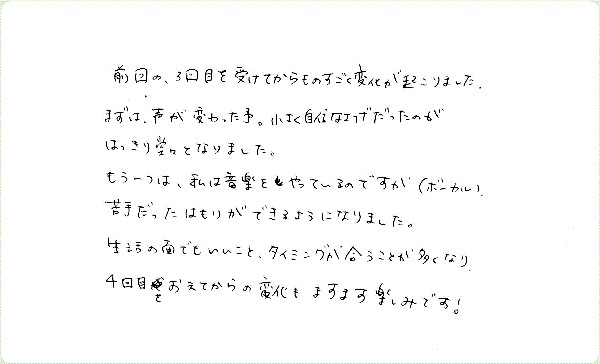 前回の、3回目を受けてからものすごく変化が起こりました。
まずは、声が変わった事。小さく自信なさげだったのが
はっきり堂々となりました。
もう一つは、私は音楽をやっているのですが(ボーカル)
苦手だったはもりができるようになりました。
生活の面でもいいこと、タイミングが合うことが多くなり
4回目をおえてからの変化もますます楽しみです!